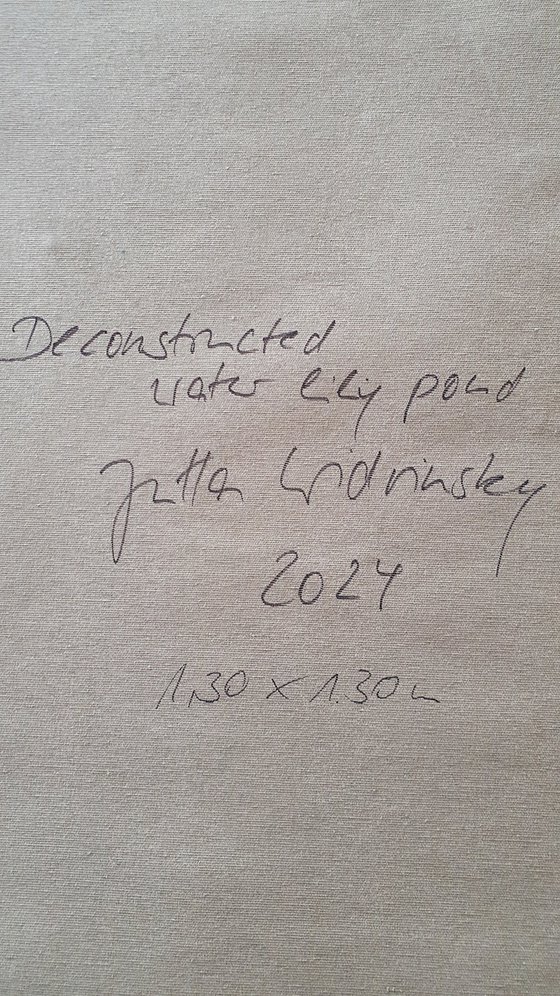 Deconstructed
water lily pond
Jutta Widrinsky
2024
1,30 x 1.30 m